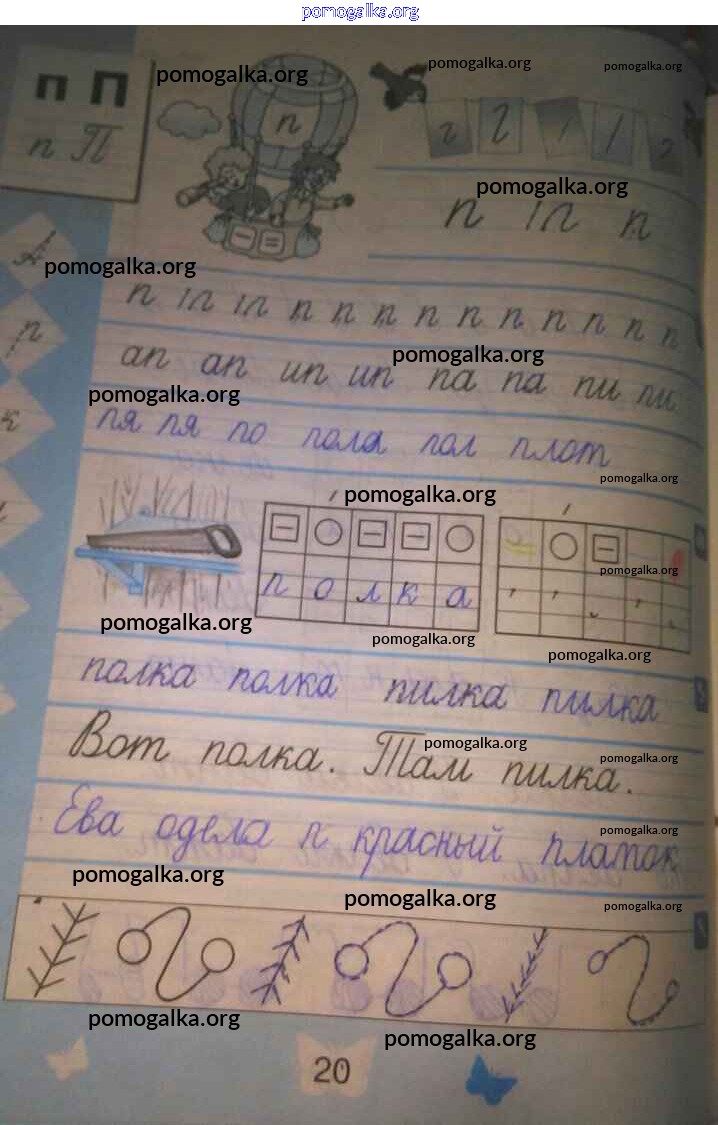 pomogalka.org
п П
pomogalka.org
pomogalka.org
pomogalka.org
п П
п
pomogalka.org
п п п
А
pomogalka.org
п п п п п п п п п п п п п п
п
pomogalka.org
ап ап ип ип па па пи пи
pomogalka.org
к
пя пя по пола пол плот
pomogalka.org
pomogalka.org
pomogalka.org
полка
pomogalka.org
pomogalka.org
pomogalka.org
полка полка пилка пилка
Вот полка. Там пилка.
pomogalka.org
pomogalka.org
Ева одела п красный платок
pomogalka.org
pomogalka.org
pomogalka.org
pomogalka.org
pomogalka.org
pomogalka.org
20